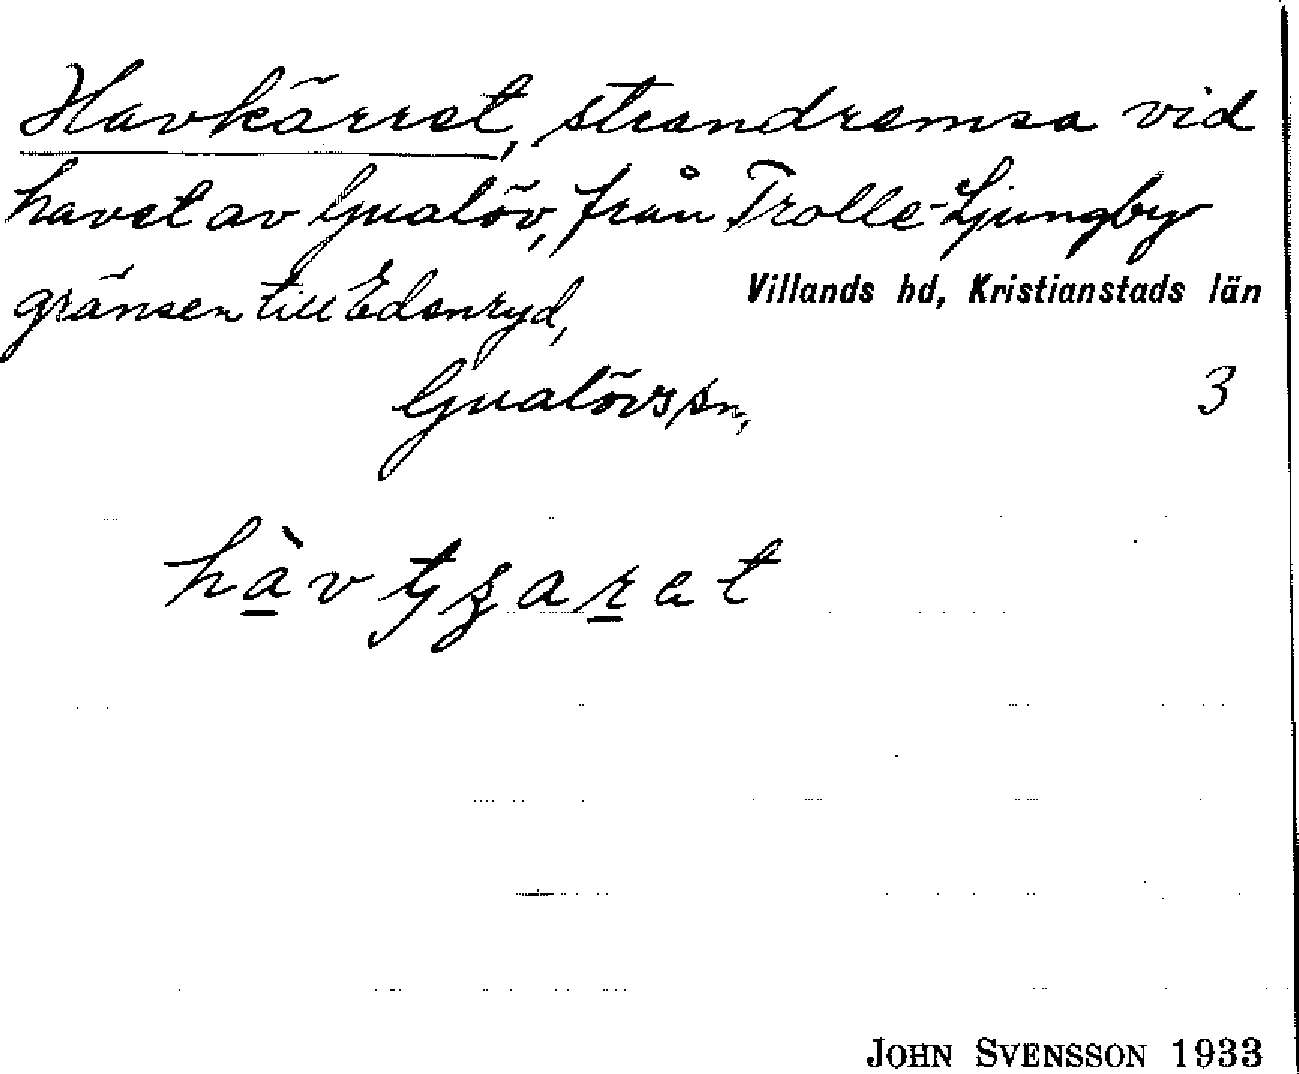 Havkärret, strandremsa vid
havet av Gualöv, från Trolle-Ljungby
gränsen till Edenryd,
Villands hd, Kristianstads län
Gualövs sn, 3
JOHN SVENSSON 1933